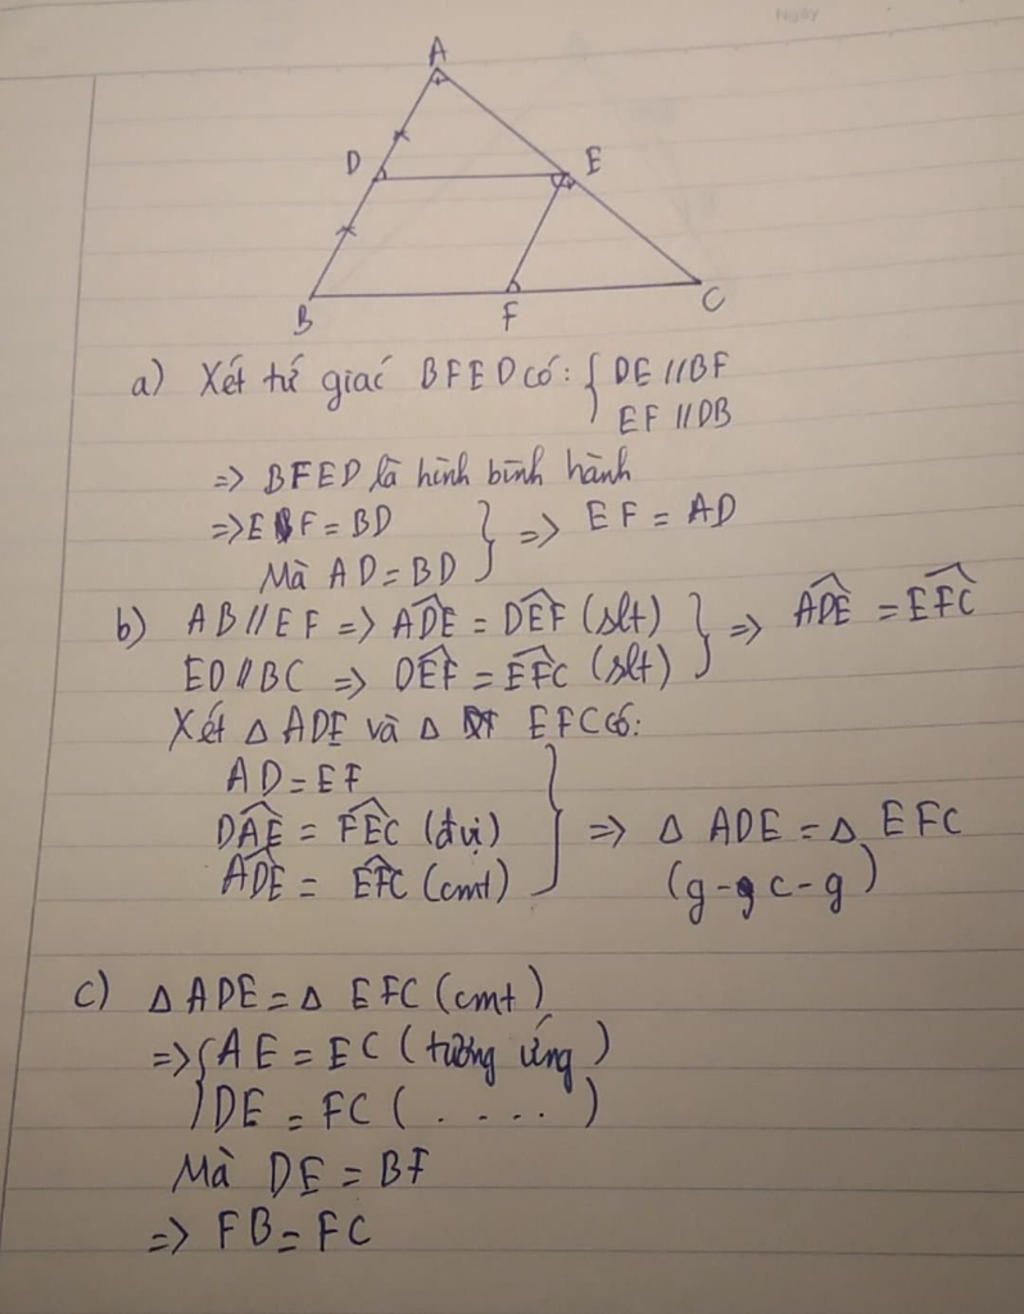 Ngày
A
D
E
B
F
C
a) Xét tứ giác BFED có: { DE // BF
EF // DB
=> BFED là hình bình hành
=> EF = BD } => EF = AD
Mà AD = BD
b) AB // EF => ADE = DEF (slt) } => ADE = EFC
ED // BC => DEF = EFC (slt)
Xét Δ ADE và Δ EFC có:
AD = EF
DAE = FEC (đvị) } => Δ ADE = Δ EFC
ADE = EFC (cmt) (g - c - g)
c) Δ ADE = Δ EFC (cmt)
=> { AE = EC (tương ứng)
DE = FC (. . . . .)
Mà DE = BF
=> FB = FC